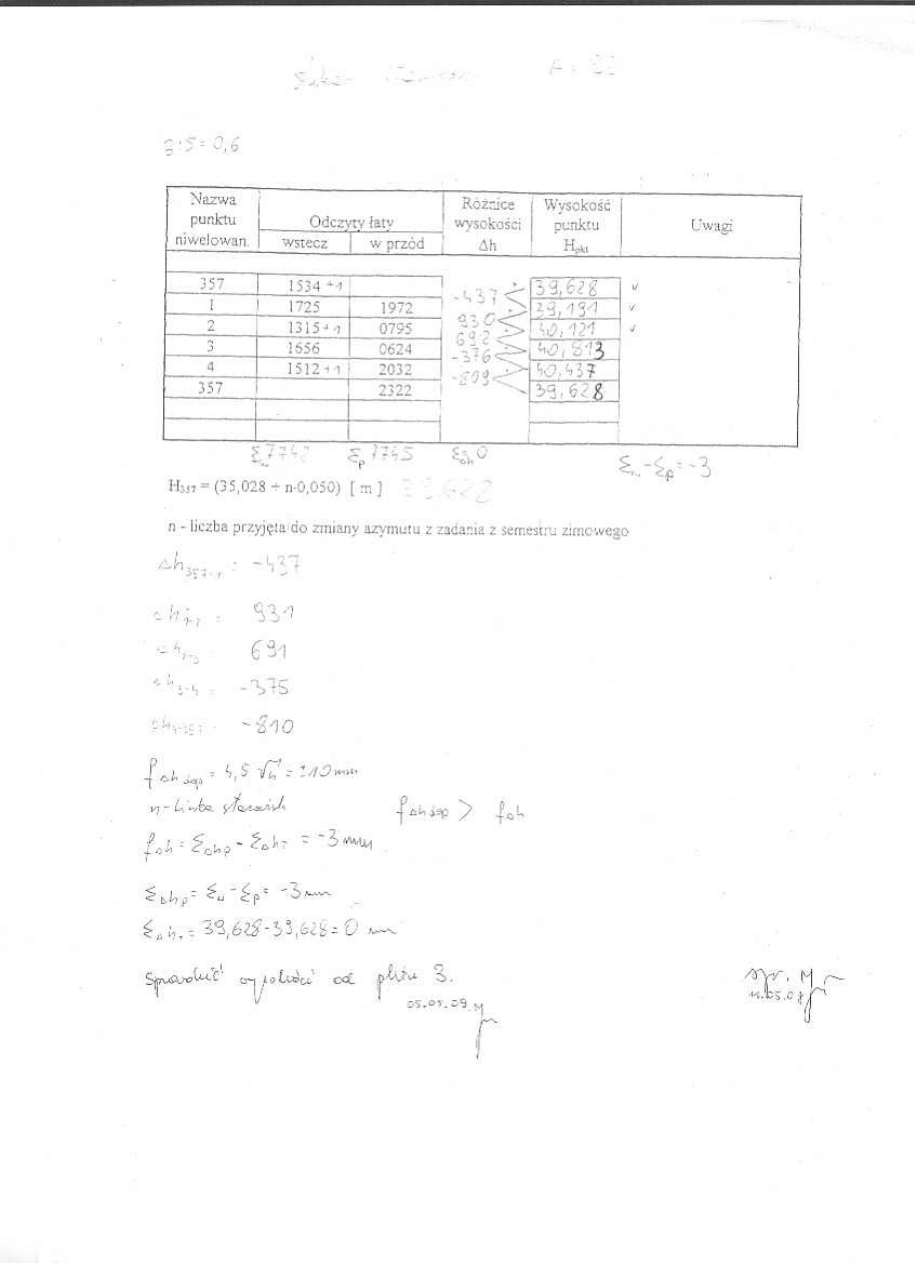 3:5=0,6
Nazwa punktu niwelowan. | Odczyty łaty wstecz | w przód | Różnice wysokości Δh | Wysokość punktu Hpkt | Uwagi
357 1534 +1 39,628 ✓
-437
1 1725 1972 39,191 ✓
930
2 1315 +1 0795 40,121 ✓
692
3 1656 0624 40,813
-376
4 1512 +1 2032 40,437
-809
357 2322 39,628
Σw 7742 Σp 7745 ΣΔh 0 Σw-Σp=-3
H357 = (35,028 + n·0,050) [ m ] 39,628
n - liczba przyjęta do zmiany azymutu z zadania z semestru zimowego
Δh357-1 = -437
Δh1-2 = 931
Δh2-3 = 691
Δh3-4 = -375
Δh4-357 = -810
fΔh dop = 4,5 √n = ±10 mm
n - liczba stanowisk fΔh dop > fΔh
fΔh = ΣΔhp - ΣΔhT = -3 mm
ΣΔhp = Σw - Σp = -3 mm
ΣΔhT = 39,628-39,628 = 0 mm
Sprawdzić wysokości od pktu 3.
05.05.09 spr.